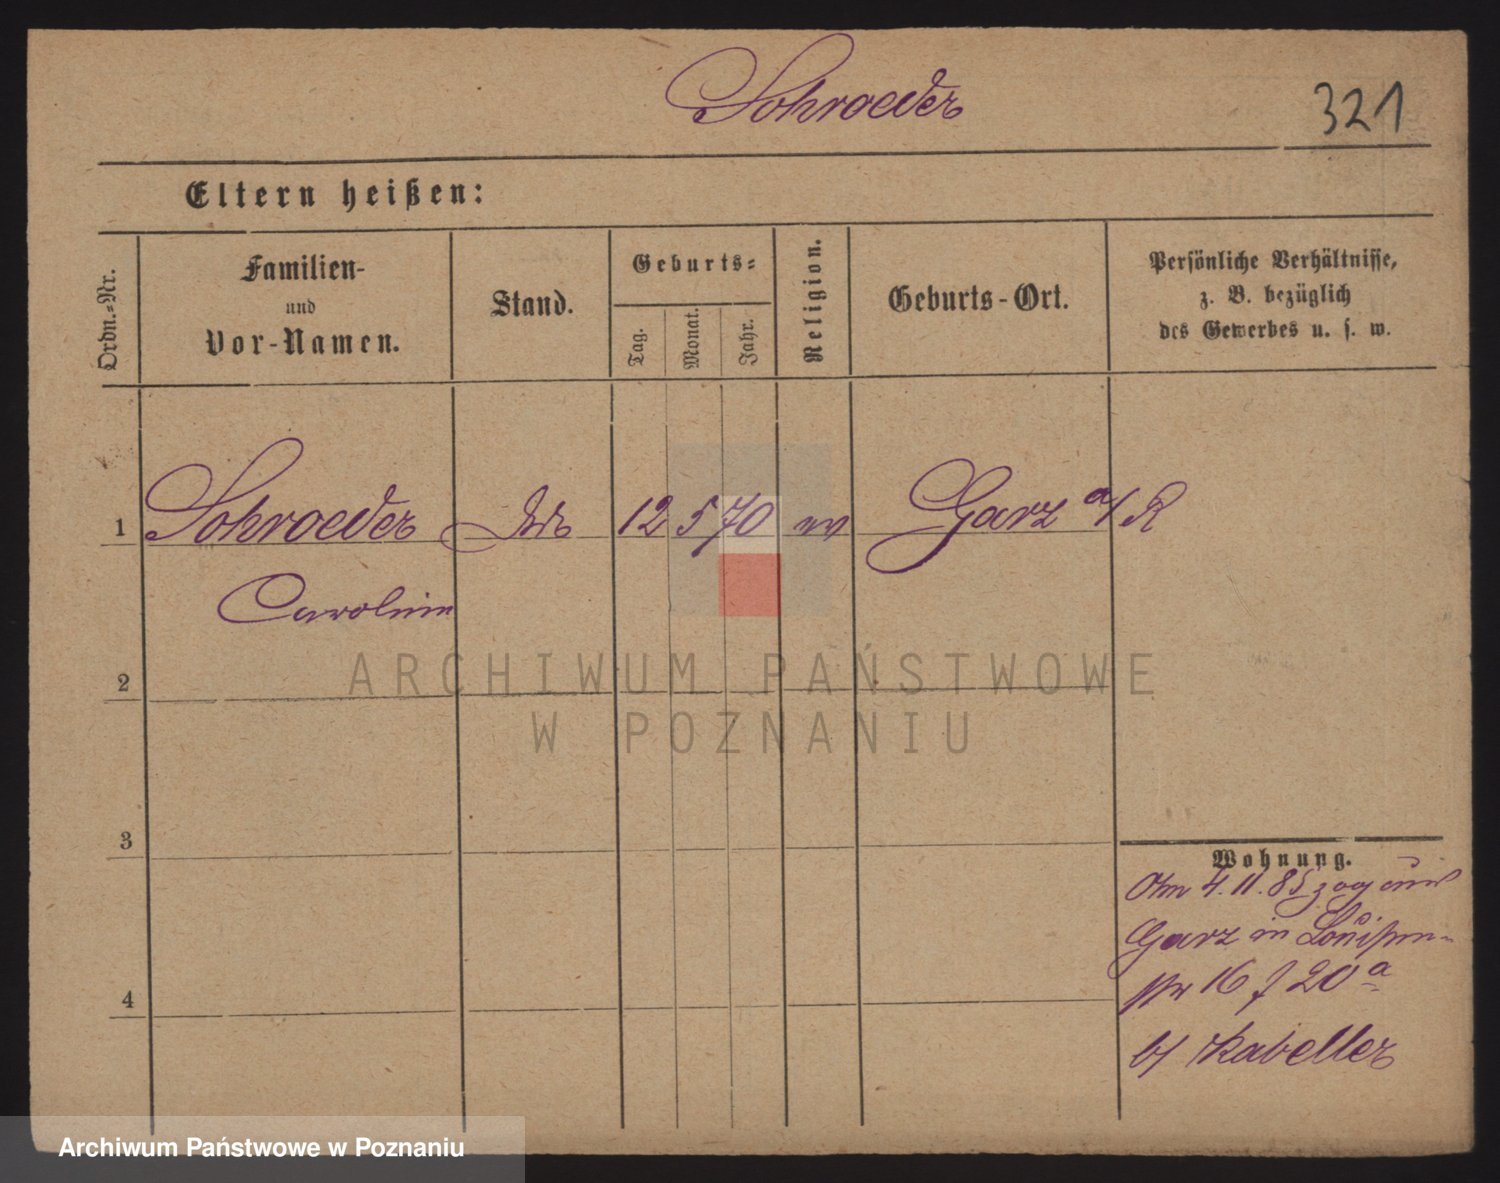 Schroeder
321
Eltern heißen:
Ordn.-Nr.
Familien-
und
Vor-Namen.
Stand.
Geburts-
Tag.
Monat.
Jahr.
Religion.
Geburts-Ort.
Persönliche Verhältnisse,
z. B. bezüglich
des Gewerbes u. s. w.
1 Schroeder 12 5 70 ev Garz a/R
Caroline
2
3
4
Wohnung.
Am 4.11.85 zog aus
Garz in Louisen-
str 16 f 20a
b/ Kabeller
ARCHIWUM PAŃSTWOWE
W POZNANIU
Archiwum Państwowe w Poznaniu